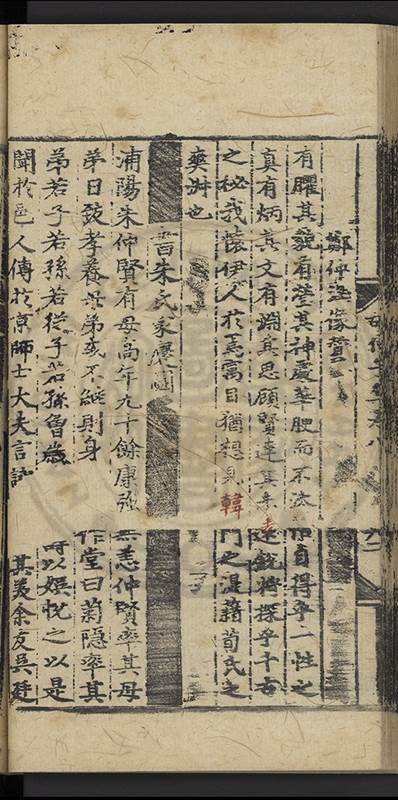 胡仲子集卷八
鄭仲涵像贊
有矐其貌有瑩其神處華腴而不貞得乎一性之
真有炳其文有淵其思顧賢達其未老逮我將探乎千古
之秘我懷伊人於焉寓目猶想見韓門之湜藉荀氏之
爽淑也
書朱氏家慶圖
浦陽朱仲賢有母高年九十餘康強無恙仲賢率其母
弟日致孝養母弟或不繼則身作堂曰菊隱率其
弟若子若孫若從子若孫魯歲時以娛悅之以是
聞於邑人傳於京師士大夫言詠其美余友吳廷